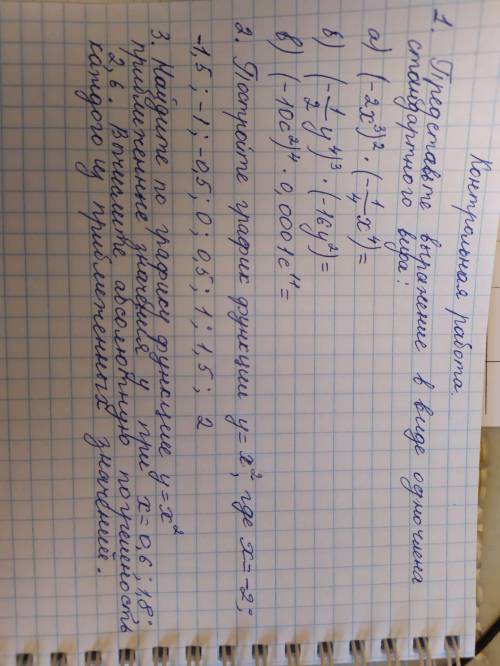 Контрольная работа.
1. Представьте выражение в виде одночлена
стандартного вида:
а) (-2x³)² · (-1/4 x⁴) =
б) (-1/2 y⁴)³ · (-16y²) =
в) (-10c²)⁴ · 0,0001c¹¹ =
2. Постройте график функции y = x², где x = -2;
-1,5; -1; -0,5; 0; 0,5; 1; 1,5; 2
3. Найдите по графику функции y = x²
приближенные значения y при x = 0,6; 1,8;
2,6. Вычислите абсолютную погрешность
каждого из приближенных значений.